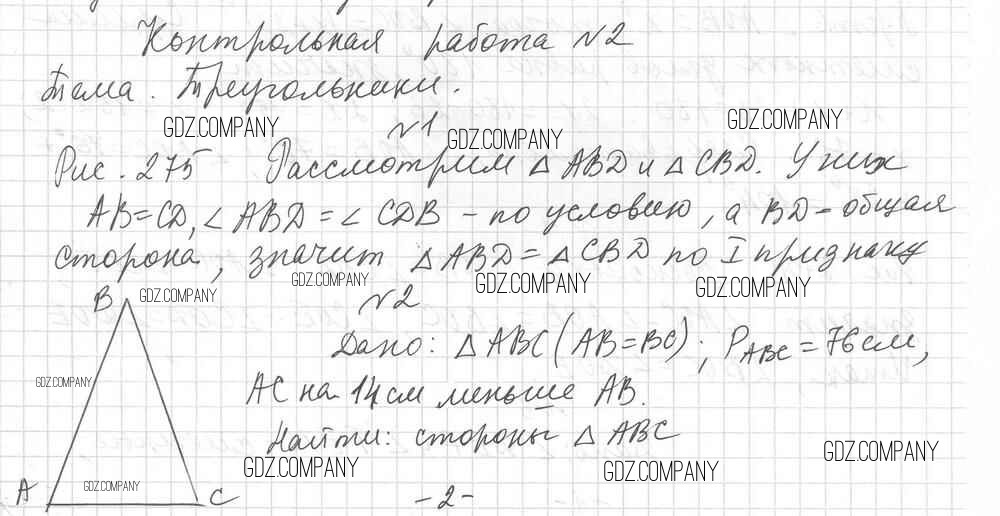 Контрольная работа №2
Тема. Треугольники.
GDZ.COMPANY №1 GDZ.COMPANY GDZ.COMPANY
Рис. 275 Рассмотрим △ ABD и △ CBD. У них
AB=CD, ∠ ABD = ∠ CDB – по условию, а BD – общая
сторона, значит △ ABD = △ CBD по I признаку
GDZ.COMPANY GDZ.COMPANY GDZ.COMPANY GDZ.COMPANY
B №2
Дано: △ ABC (AB=BC); P ABC = 76 см,
GDZ.COMPANY
AC на 14 см меньше AB.
Найти: стороны △ ABC
GDZ.COMPANY GDZ.COMPANY GDZ.COMPANY
GDZ.COMPANY
A C - 2 -